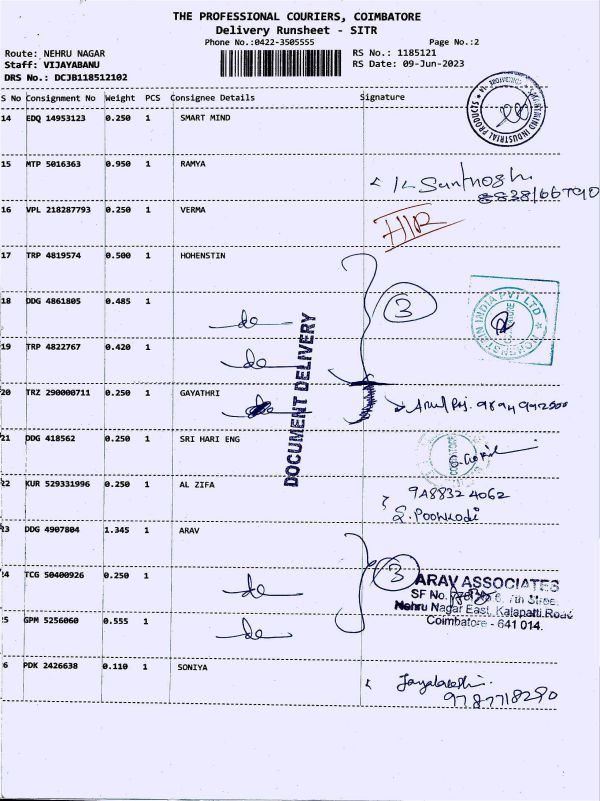 THE PROFESSIONAL COURIERS, COIMBATORE
Delivery Runsheet - SITR
Phone No.:0422-3505555 Page No.:2
Route: NEHRU NAGAR RS No.: 1185121
Staff: VIJAYABANU RS Date: 09-Jun-2023
DRS No.: DCJB118512102
S No Consignment No Weight PCS Consignee Details Signature
14 EDQ 14953123 0.250 1 SMART MIND
INDUSTRIAL PRODUCTS
15 MTP 5016363 0.950 1 RAMYA
16 VPL 218287793 0.250 1 VERMA
17 TRP 4819574 0.500 1 HOHENSTIN
18 DDG 4861805 0.485 1 do 3
INDIA PVT LTD
19 TRP 4822767 0.420 1 do
DOCUMENT DELIVERY
20 TRZ 290000711 0.250 1 GAYATHRI
21 DDG 418562 0.250 1 SRI HARI ENG
22 KUR 529331996 0.250 1 AL ZIFA
S. Poonkodi
23 DDG 4907804 1.345 1 ARAV
24 TCG 50400926 0.250 1 do 3 ARAV ASSOCIATES
SF No. 7th Street
Nehru Nagar East, Kalapatti Road
25 GPM 5256060 0.555 1 do Coimbatore - 641 014.
26 PDK 2426638 0.110 1 SONIYA
9787718290